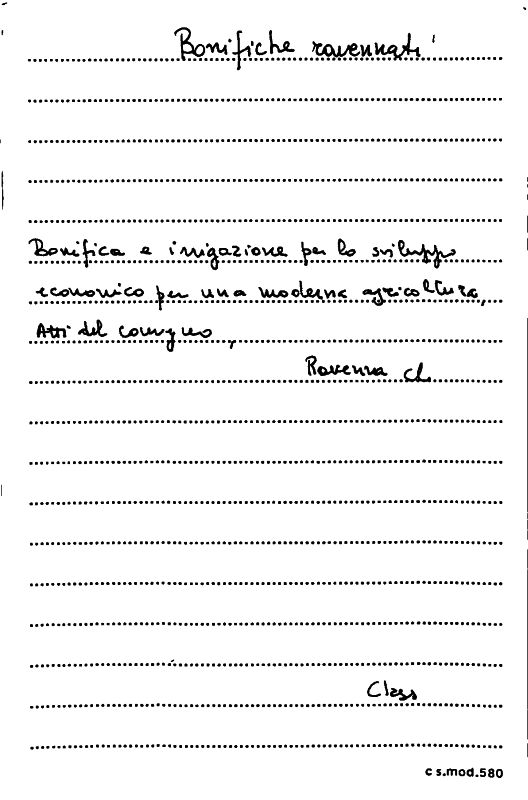 Bonifiche ravennati
Bonifica e irrigazione per lo sviluppo
economico per una moderna agricoltura,
Atti del convegno,
Ravenna cl.
Class
c s.mod.580